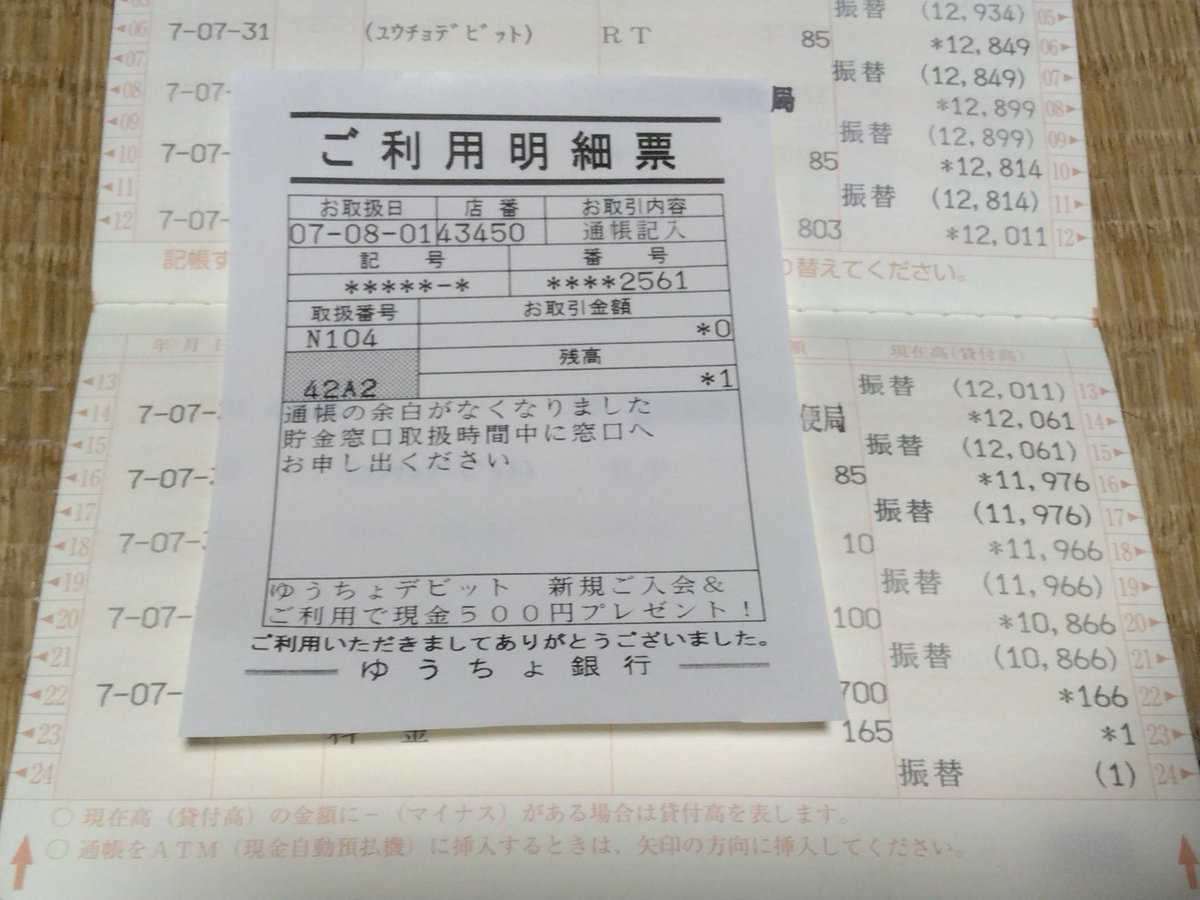 振替 (12,934) 05
06 7-07-31 (ユウチョデビット) RT 85 *12,849 06
07 振替 (12,849) 07
08 7-07- 局 *12,899 08
09 振替 (12,899) 09
10 7-07- 85 *12,814 10
11 振替 (12,814) 11
12 7-07- 803 *12,011 12
記帳 替えてください。
ご利用明細票
お取扱日 店番 お取引内容
07-08-01 43450 通帳記入
記号 番号
*****-* ****2561
取扱番号 お取引金額
N104 *0
残高
42A2 *1
通帳の余白がなくなりました
貯金窓口取扱時間中に窓口へ
お申し出ください
ゆうちょデビット 新規ご入会&
ご利用で現金500円プレゼント!
ご利用いただきましてありがとうございました。
ゆうちょ銀行
年月日 現在高(貸付高)
13 振替 (12,011) 13
14 7-07- 便局 *12,061 14
15 振替 (12,061) 15
16 7-07- 85 *11,976 16
17 振替 (11,976) 17
18 7-07- 10 *11,966 18
19 振替 (11,966) 19
20 7-07- 100 *10,866 20
21 振替 (10,866) 21
22 7-07- 700 *166 22
23 料金 165 *1 23
24 振替 (1) 24
○ 現在高(貸付高)の金額に-(マイナス)がある場合は貸付高を表します。
○ 通帳をATM(現金自動預払機)に挿入するときは、矢印の方向に挿入してください。